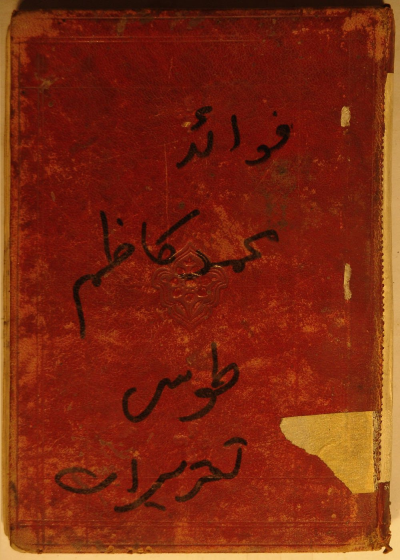 فوائد
محمد کاظم
طوس
تحریرات